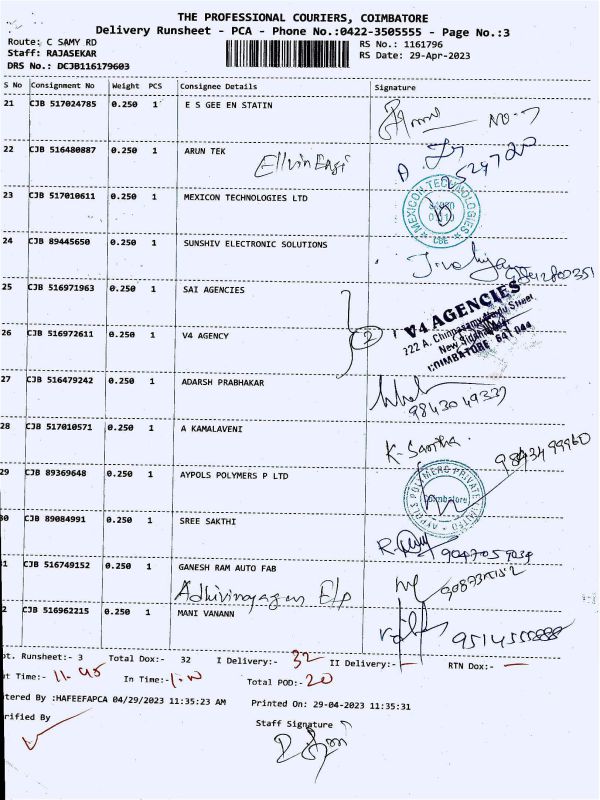 THE PROFESSIONAL COURIERS, COIMBATORE
Delivery Runsheet - PCA - Phone No.:0422-3505555 - Page No.:3
Route: C SAMY RD
RS No.: 1161796
Staff: RAJASEKAR
RS Date: 29-Apr-2023
DRS No.: DCJB116179603
S No Consignment No Weight PCS Consignee Details Signature
21 CJB 517024785 0.250 1 E S GEE EN STATIN
22 CJB 516480887 0.250 1 ARUN TEK
Ellvin Engi
23 CJB 517010611 0.250 1 MEXICON TECHNOLOGIES LTD
MEXICON TECHNOLOGIES
CBE
24 CJB 89445650 0.250 1 SUNSHIV ELECTRONIC SOLUTIONS
25 CJB 516971963 0.250 1 SAI AGENCIES
V4 AGENCIES
26 CJB 516972611 0.250 1 V4 AGENCY
2
COIMBATORE 641 044
27 CJB 516479242 0.250 1 ADARSH PRABHAKAR
9843049337
28 CJB 517010571 0.250 1 A KAMALAVENI
K. Saritha
9843499960
29 CJB 89369648 0.250 1 AYPOLS POLYMERS P LTD
AYPOLS POLYMERS PRIVATE LIMITED
Coimbatore
30 CJB 89084991 0.250 1 SREE SAKTHI
9047059034
1 CJB 516749152 0.250 1 GANESH RAM AUTO FAB
Adhivinayagan E/p
2 CJB 516962215 0.250 1 MANI VANANN
ot. Runsheet:- 3 Total Dox:- 32 I Delivery:- 32 II Delivery:- — RTN Dox:- —
ut Time:- 11.45 In Time:- Total POD:- 20
tered By :HAFEEFAPCA 04/29/2023 11:35:23 AM Printed On: 29-04-2023 11:35:31
rified By
Staff Signature